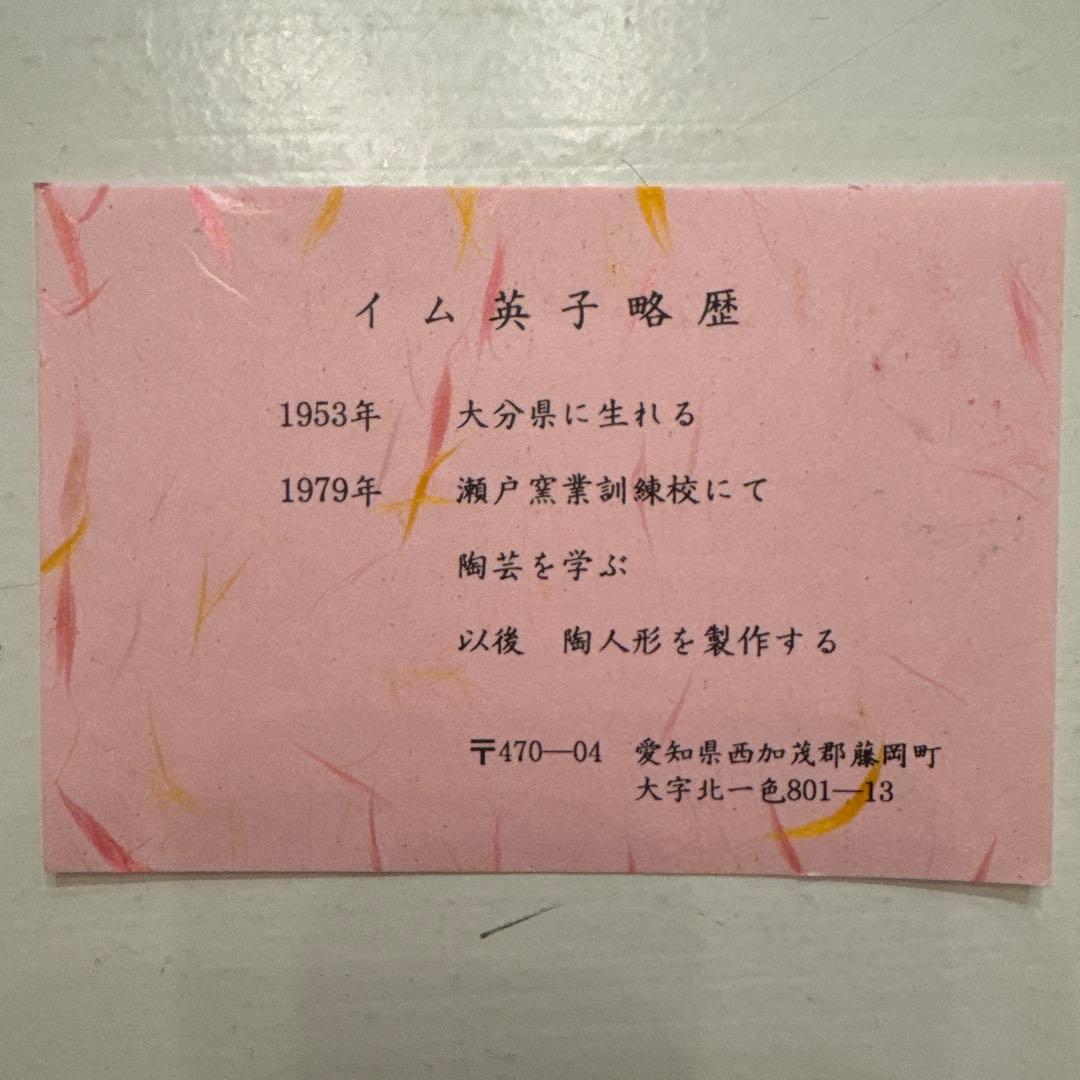 イム英子略歴
1953年 大分県に生れる
1979年 瀬戸窯業訓練校にて
陶芸を学ぶ
以後 陶人形を製作する
〒470―04 愛知県西加茂郡藤岡町
大字北一色801―13